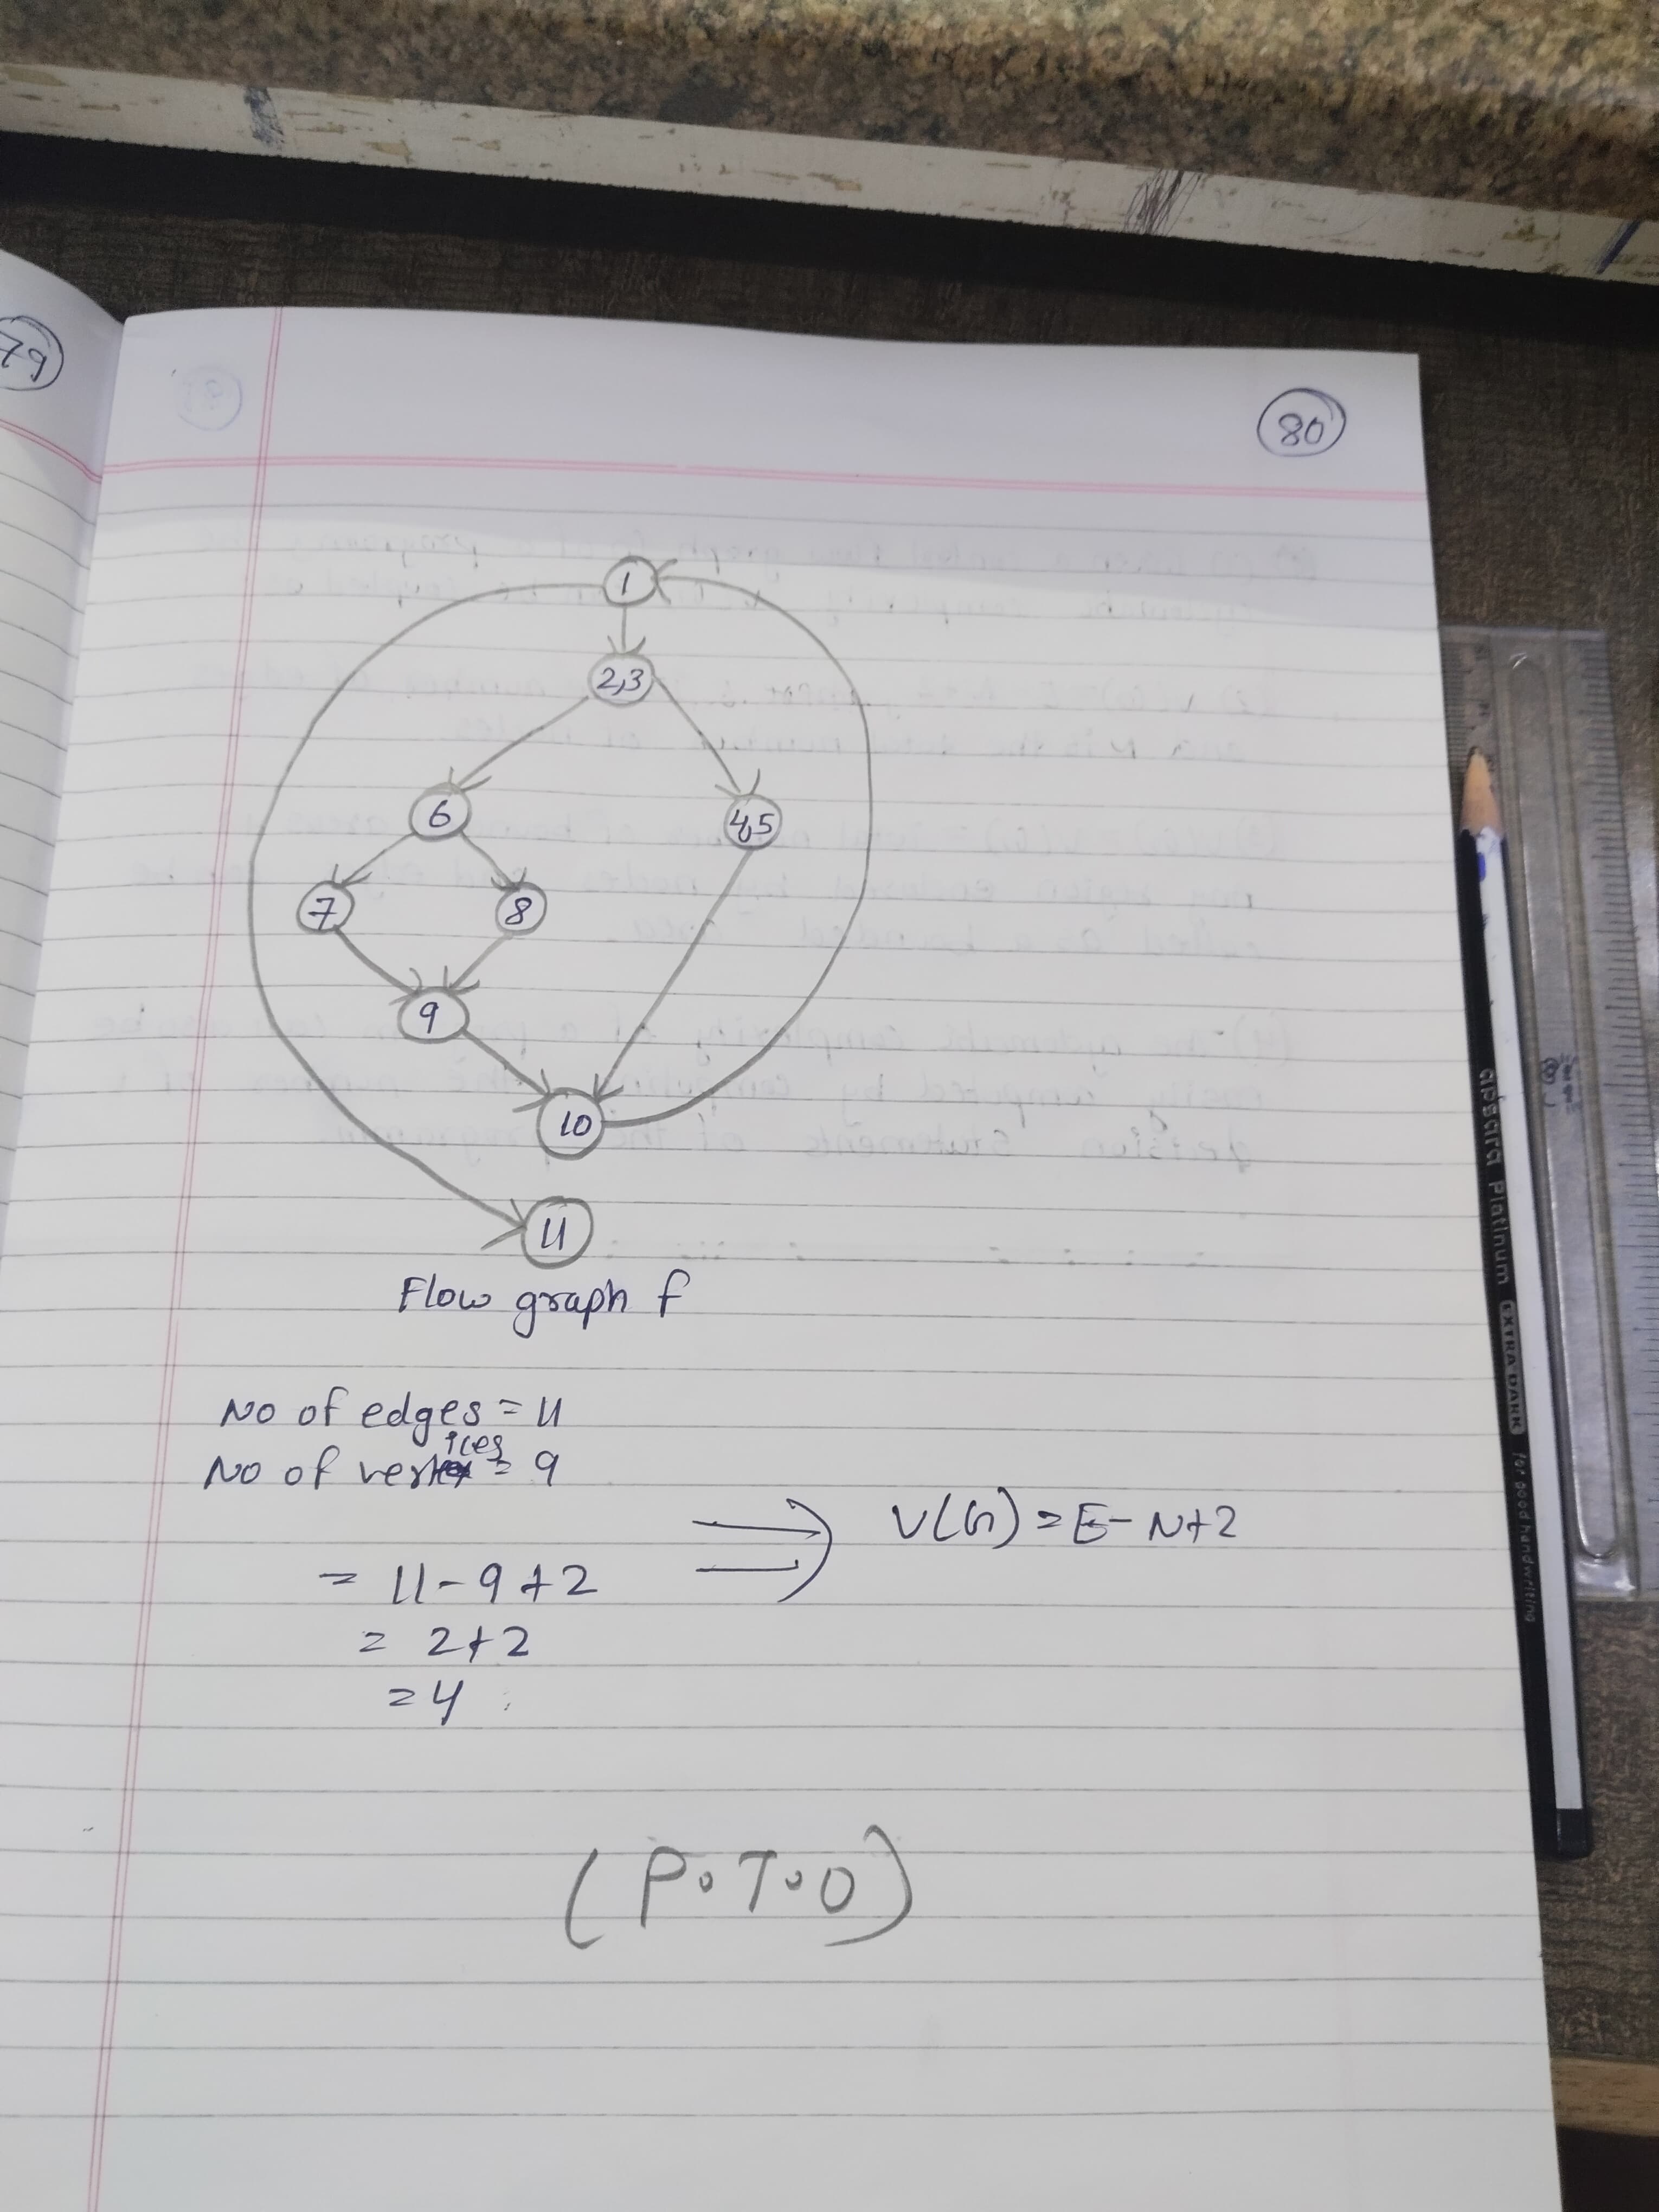 79
80
1
2,3
6
4,5
7
8
9
10
11
Flow graph f
No of edges = 11
No of vertices = 9
V(G) = E - N + 2
= 11 - 9 + 2
= 2 + 2
= 4
(P.T.O)
apsara Platinum EXTRA DARK for good handwriting